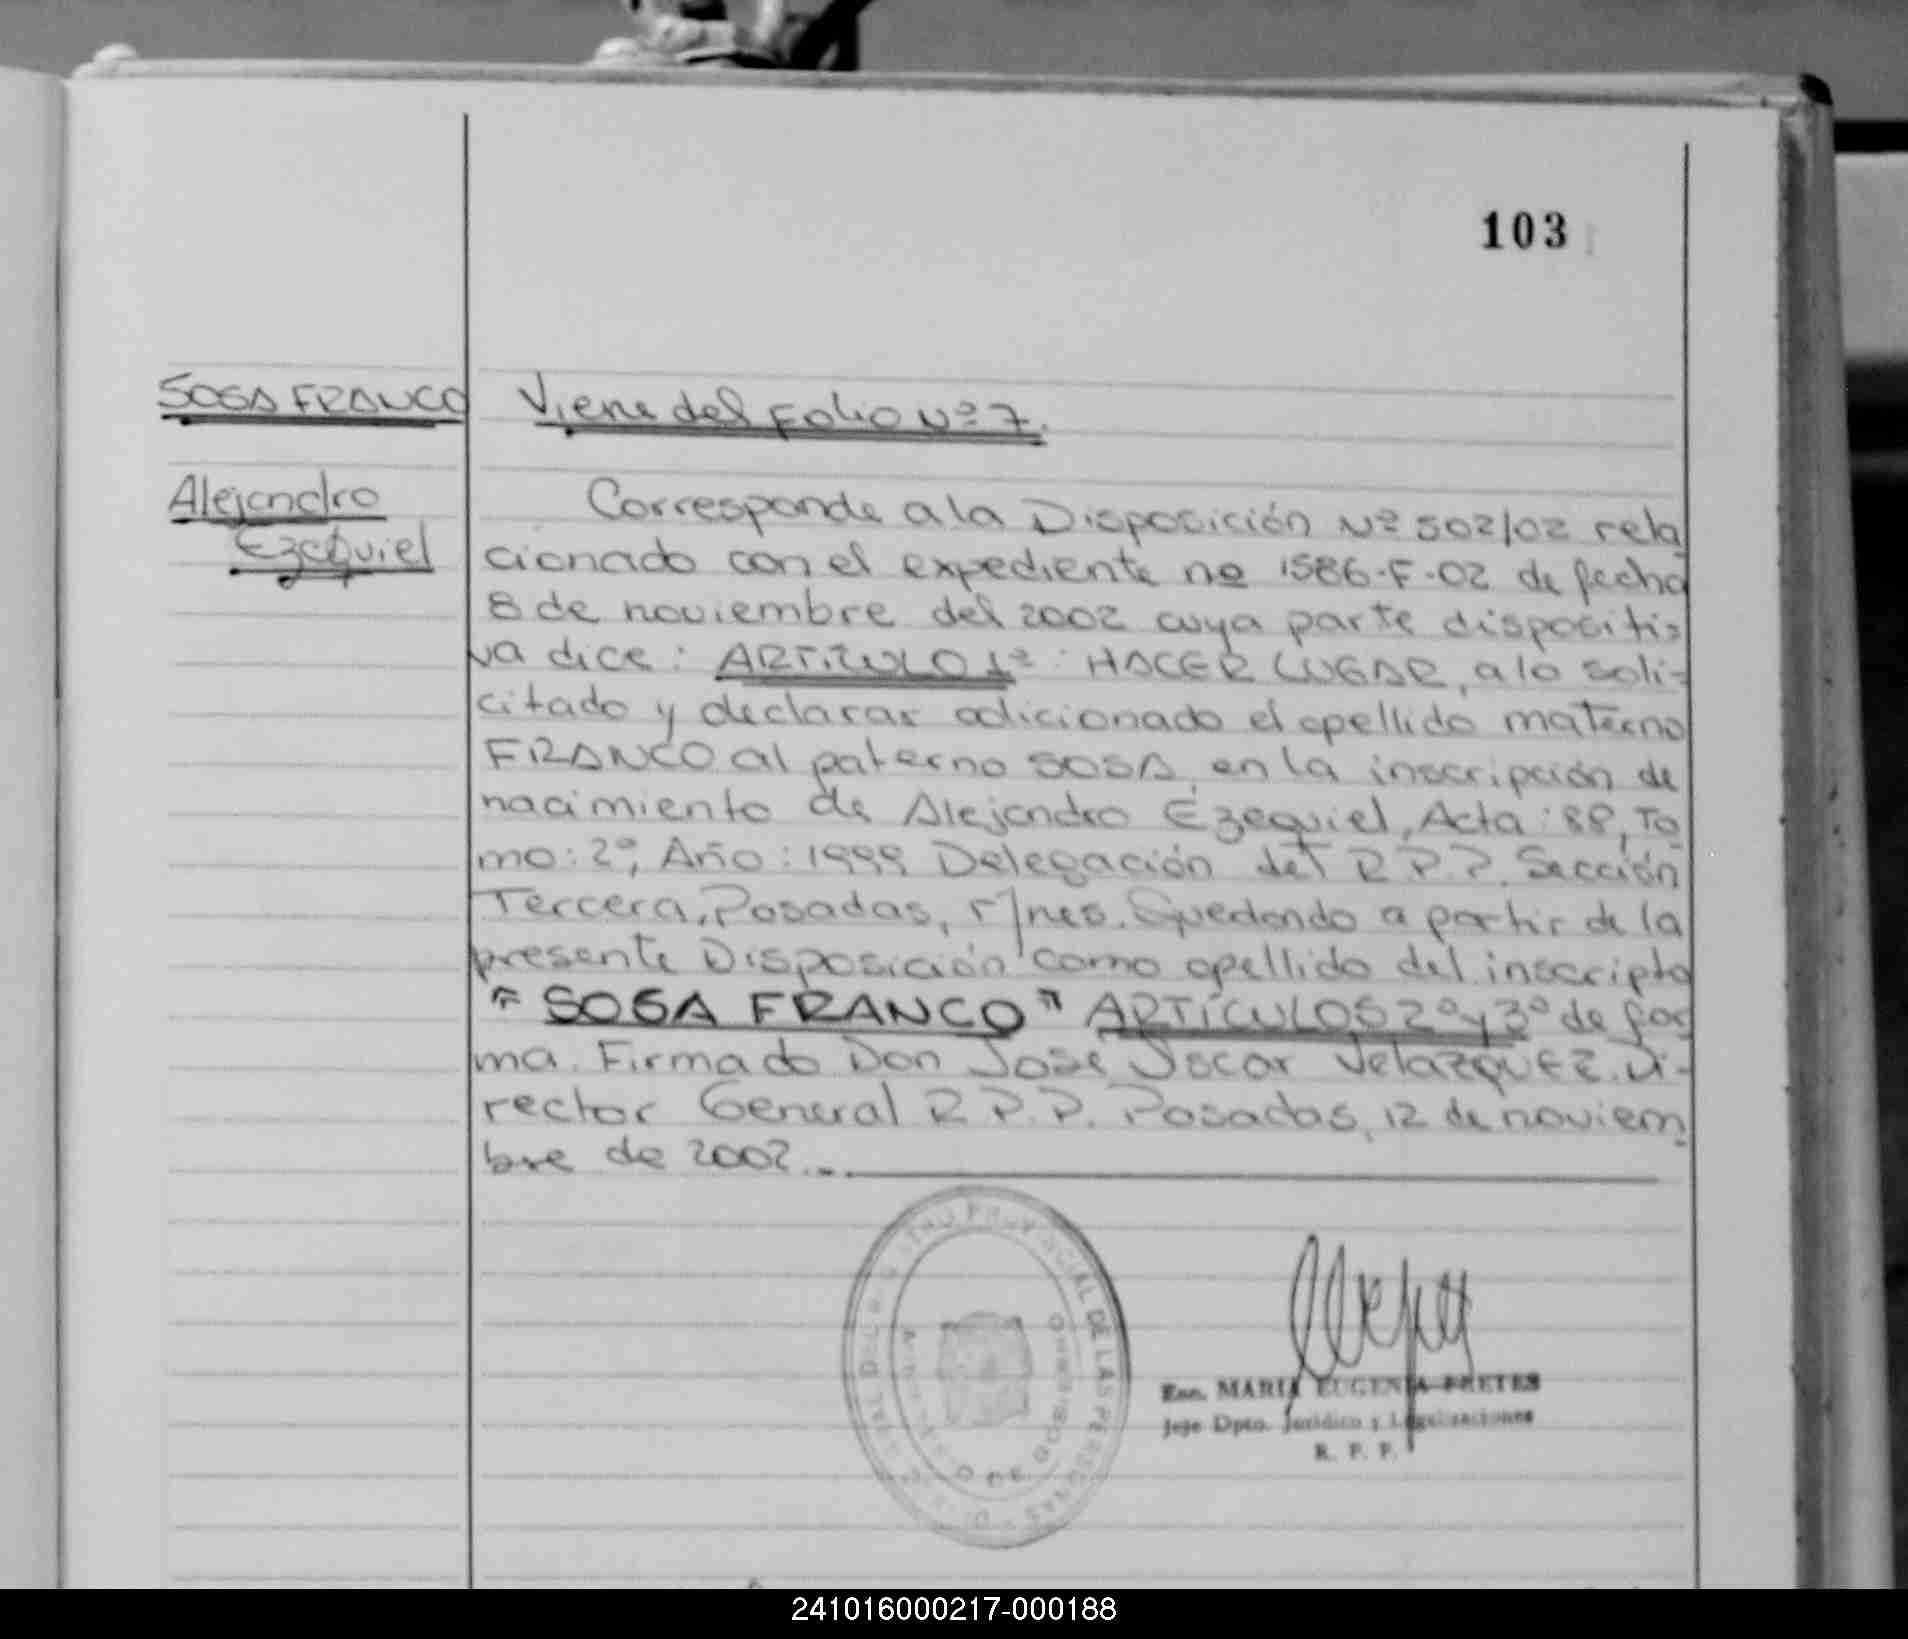 103
SOSA FRANCO
Viene del Folio Nº 7.
Alejandro
Ezequiel
Corresponde a la Disposición Nº 502/02 rela
cionado con el expediente nº 1586-F-02 de fecha
8 de noviembre del 2002 cuya parte dispositi=
va dice: ARTÍCULO 1º: HACER LUGAR, a lo soli=
citado y declarar adicionado el apellido materno
FRANCO al paterno SOSA, en la inscripción de
nacimiento de Alejandro Ezequiel, Acta: 88, To
mo: 2º, Año: 1999 Delegación del R.P.P. Sección
Tercera, Posadas, Mnes. Quedando a partir de la
presente Disposición como apellido del inscripto
"SOSA FRANCO" ARTÍCULOS 2º y 3º de for
ma. Firmado Don José Oscar Velazquez. Di-
rector General R.P.P. Posadas, 12 de noviem
bre de 2002...
REGISTRO PROVINCIAL DE LAS PERSONAS
MINISTERIO DE GOBIERNO
Esc. MARIA EUGENIA PRETES
Jefe Dpto. Jurídico y Legalizaciones
R. P. P.
241016000217-000188